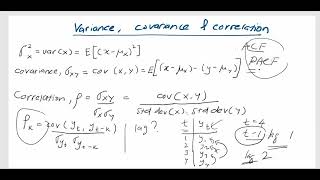 Variance, covariance & correlation
σx² = var(x) = E[(x-μx)²]
ACF
PACF
covariance, σxy = cov (x, y) = E[(x-μx) - (y-μy)]
Correlation, ρ = σxy / σxσy = cov(x,y) / std dev(x). std dev(y)
ρk = cov(yt, yt-k) / σyt σyt-k
lag?
t yt
1 y1
2 y2
3 y3
4 y4
t=4
t-1
lag 1
lag 2